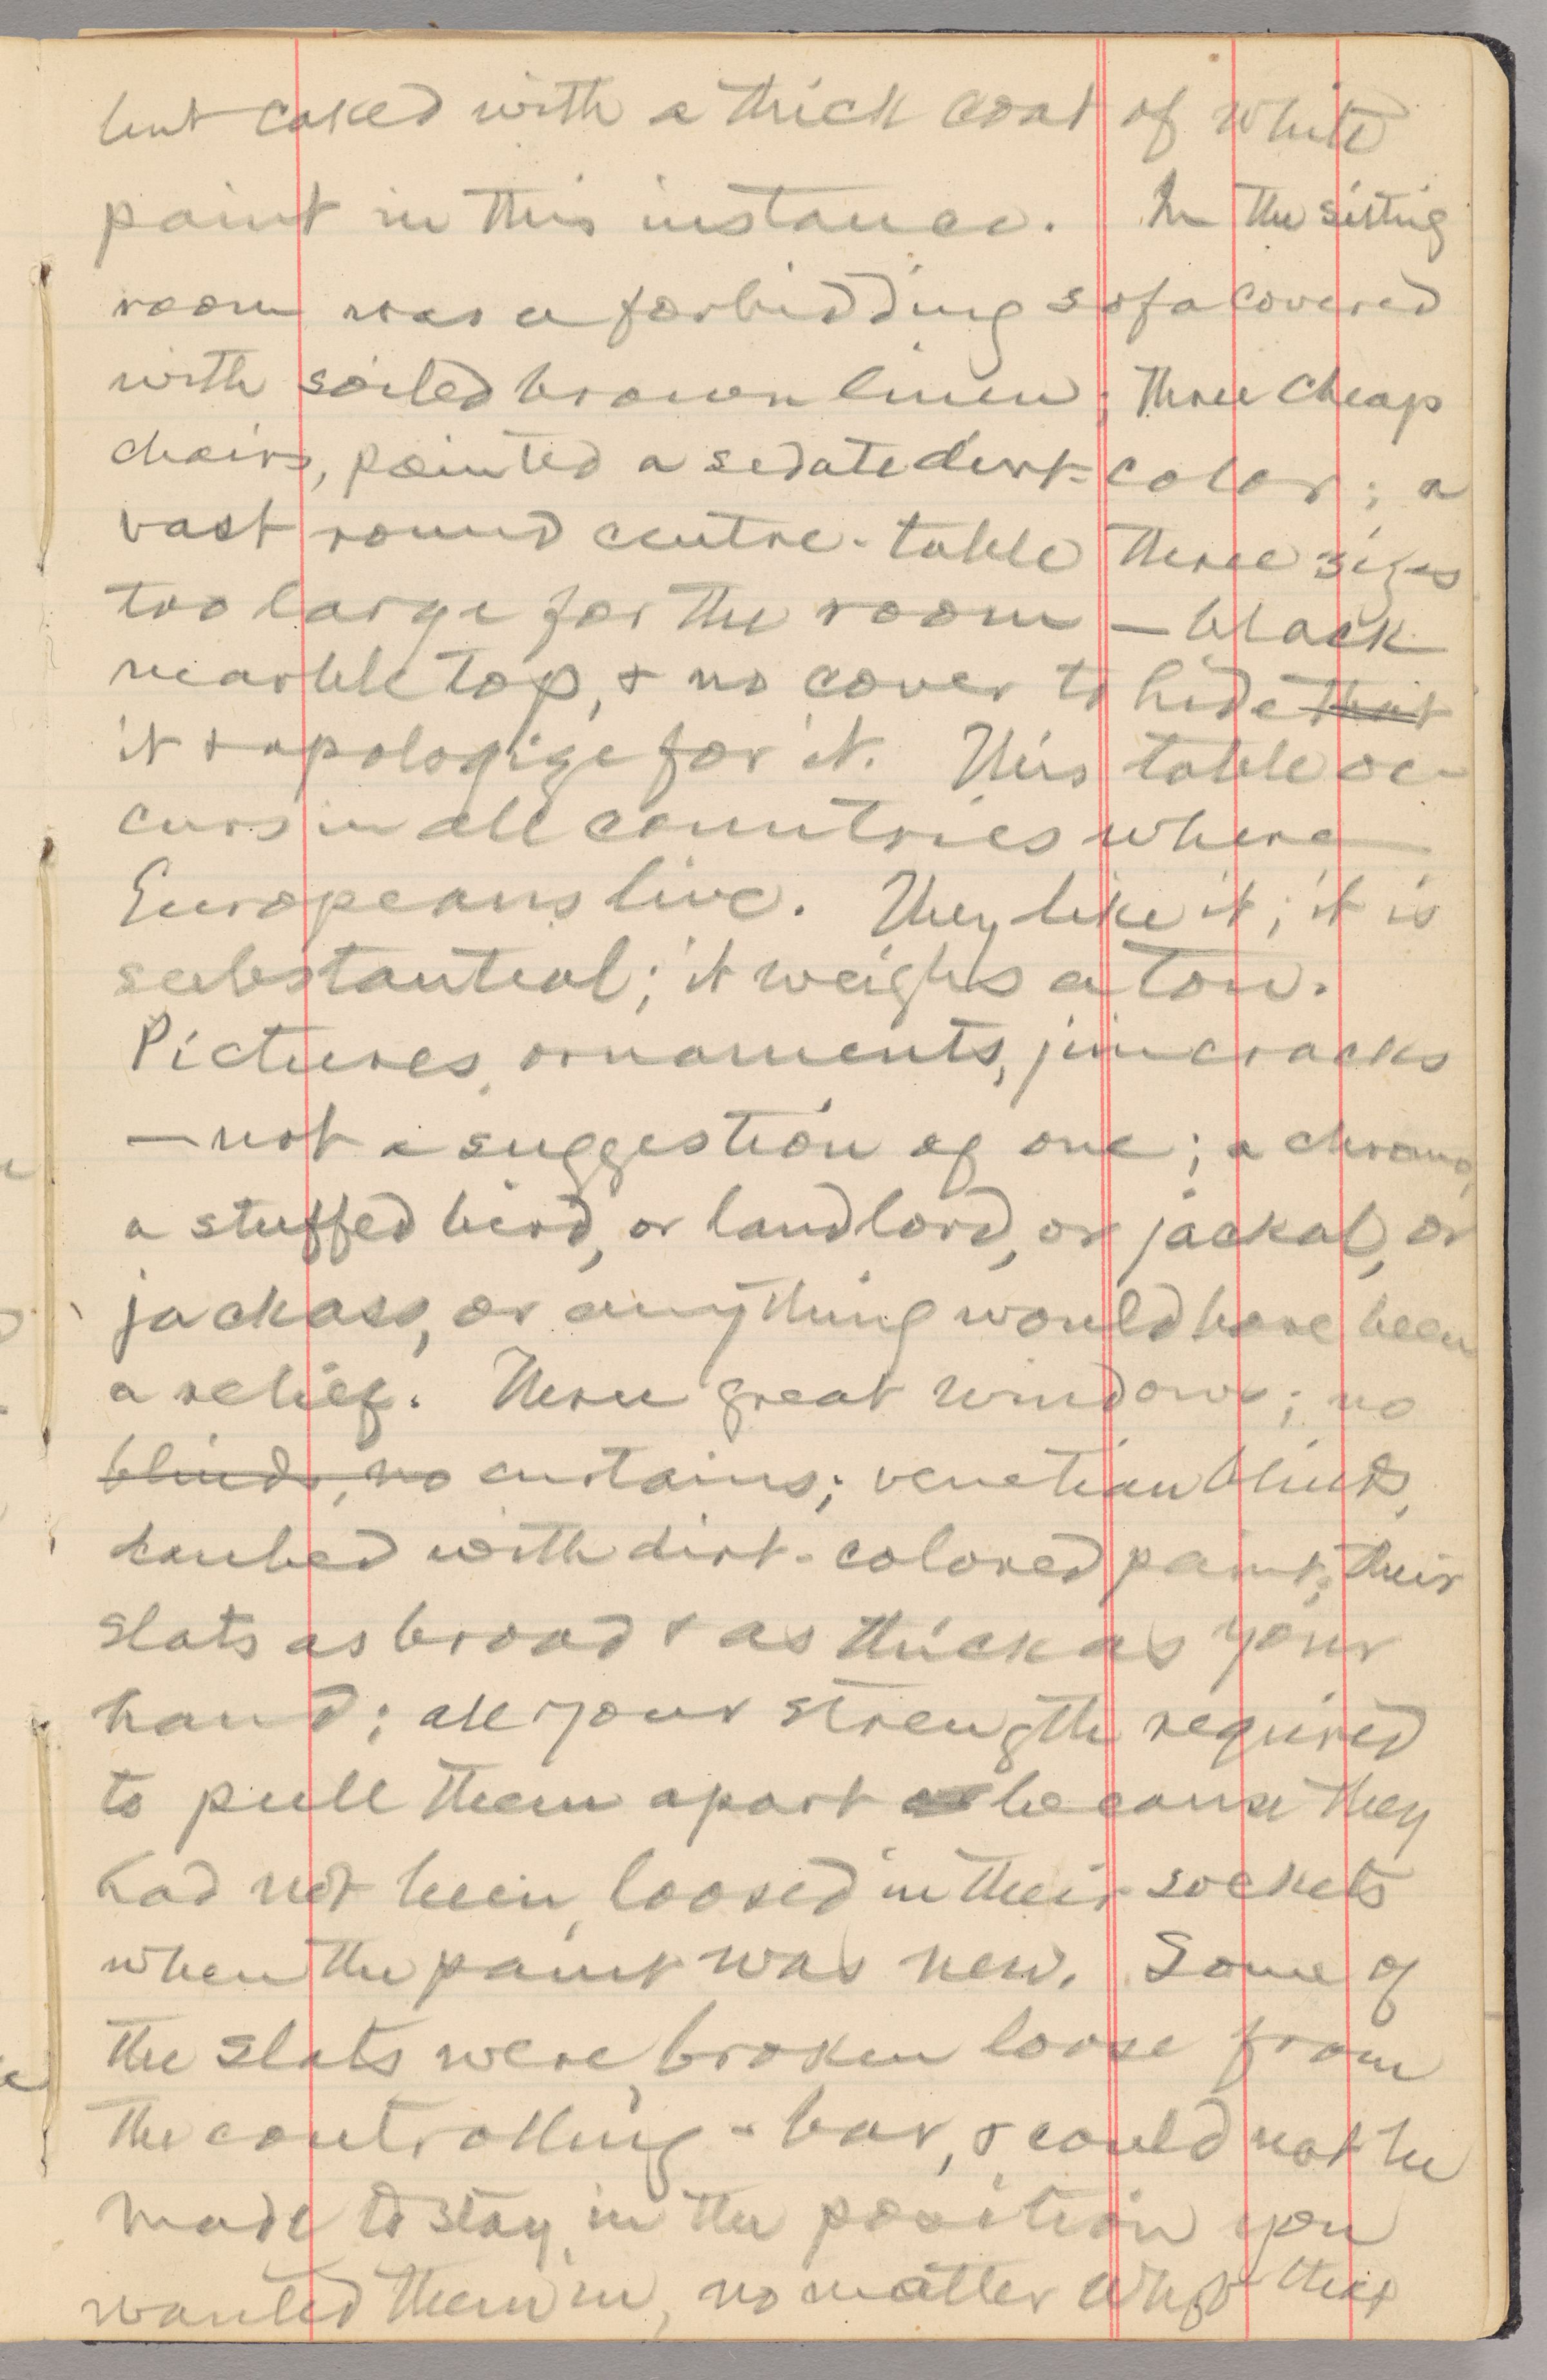 but caked with a thick coat of white
paint in this instance. In the sitting
room was a forbidding sofa covered
with soiled brown linen; three cheap
chairs, painted a sedate dirt-color; a
vast round centre-table three sizes
too large for the room — black
marble top, & no cover to hide that
it & apologize for it. This table oc-
curs in all countries where
Europeans live. They like it; it is
substantial; it weighs a ton.
Pictures, ornaments, jimcracks
— not a suggestion of one; a chromo,
a stuffed bird, or landlord, or jackal, or
jackass, or anything would have been
a relief. Three great windows; no
blinds, no curtains; venetian blinds,
daubed with dirt-colored paint; their
slats as broad & as thick as your
hand; all your strength required
to pull them apart because they
had not been loosed in their sockets
when the paint was new. Some of
the slats were broken loose from
the controlling-bar, & could not be
made to stay in the position you
wanted them in, no matter what that